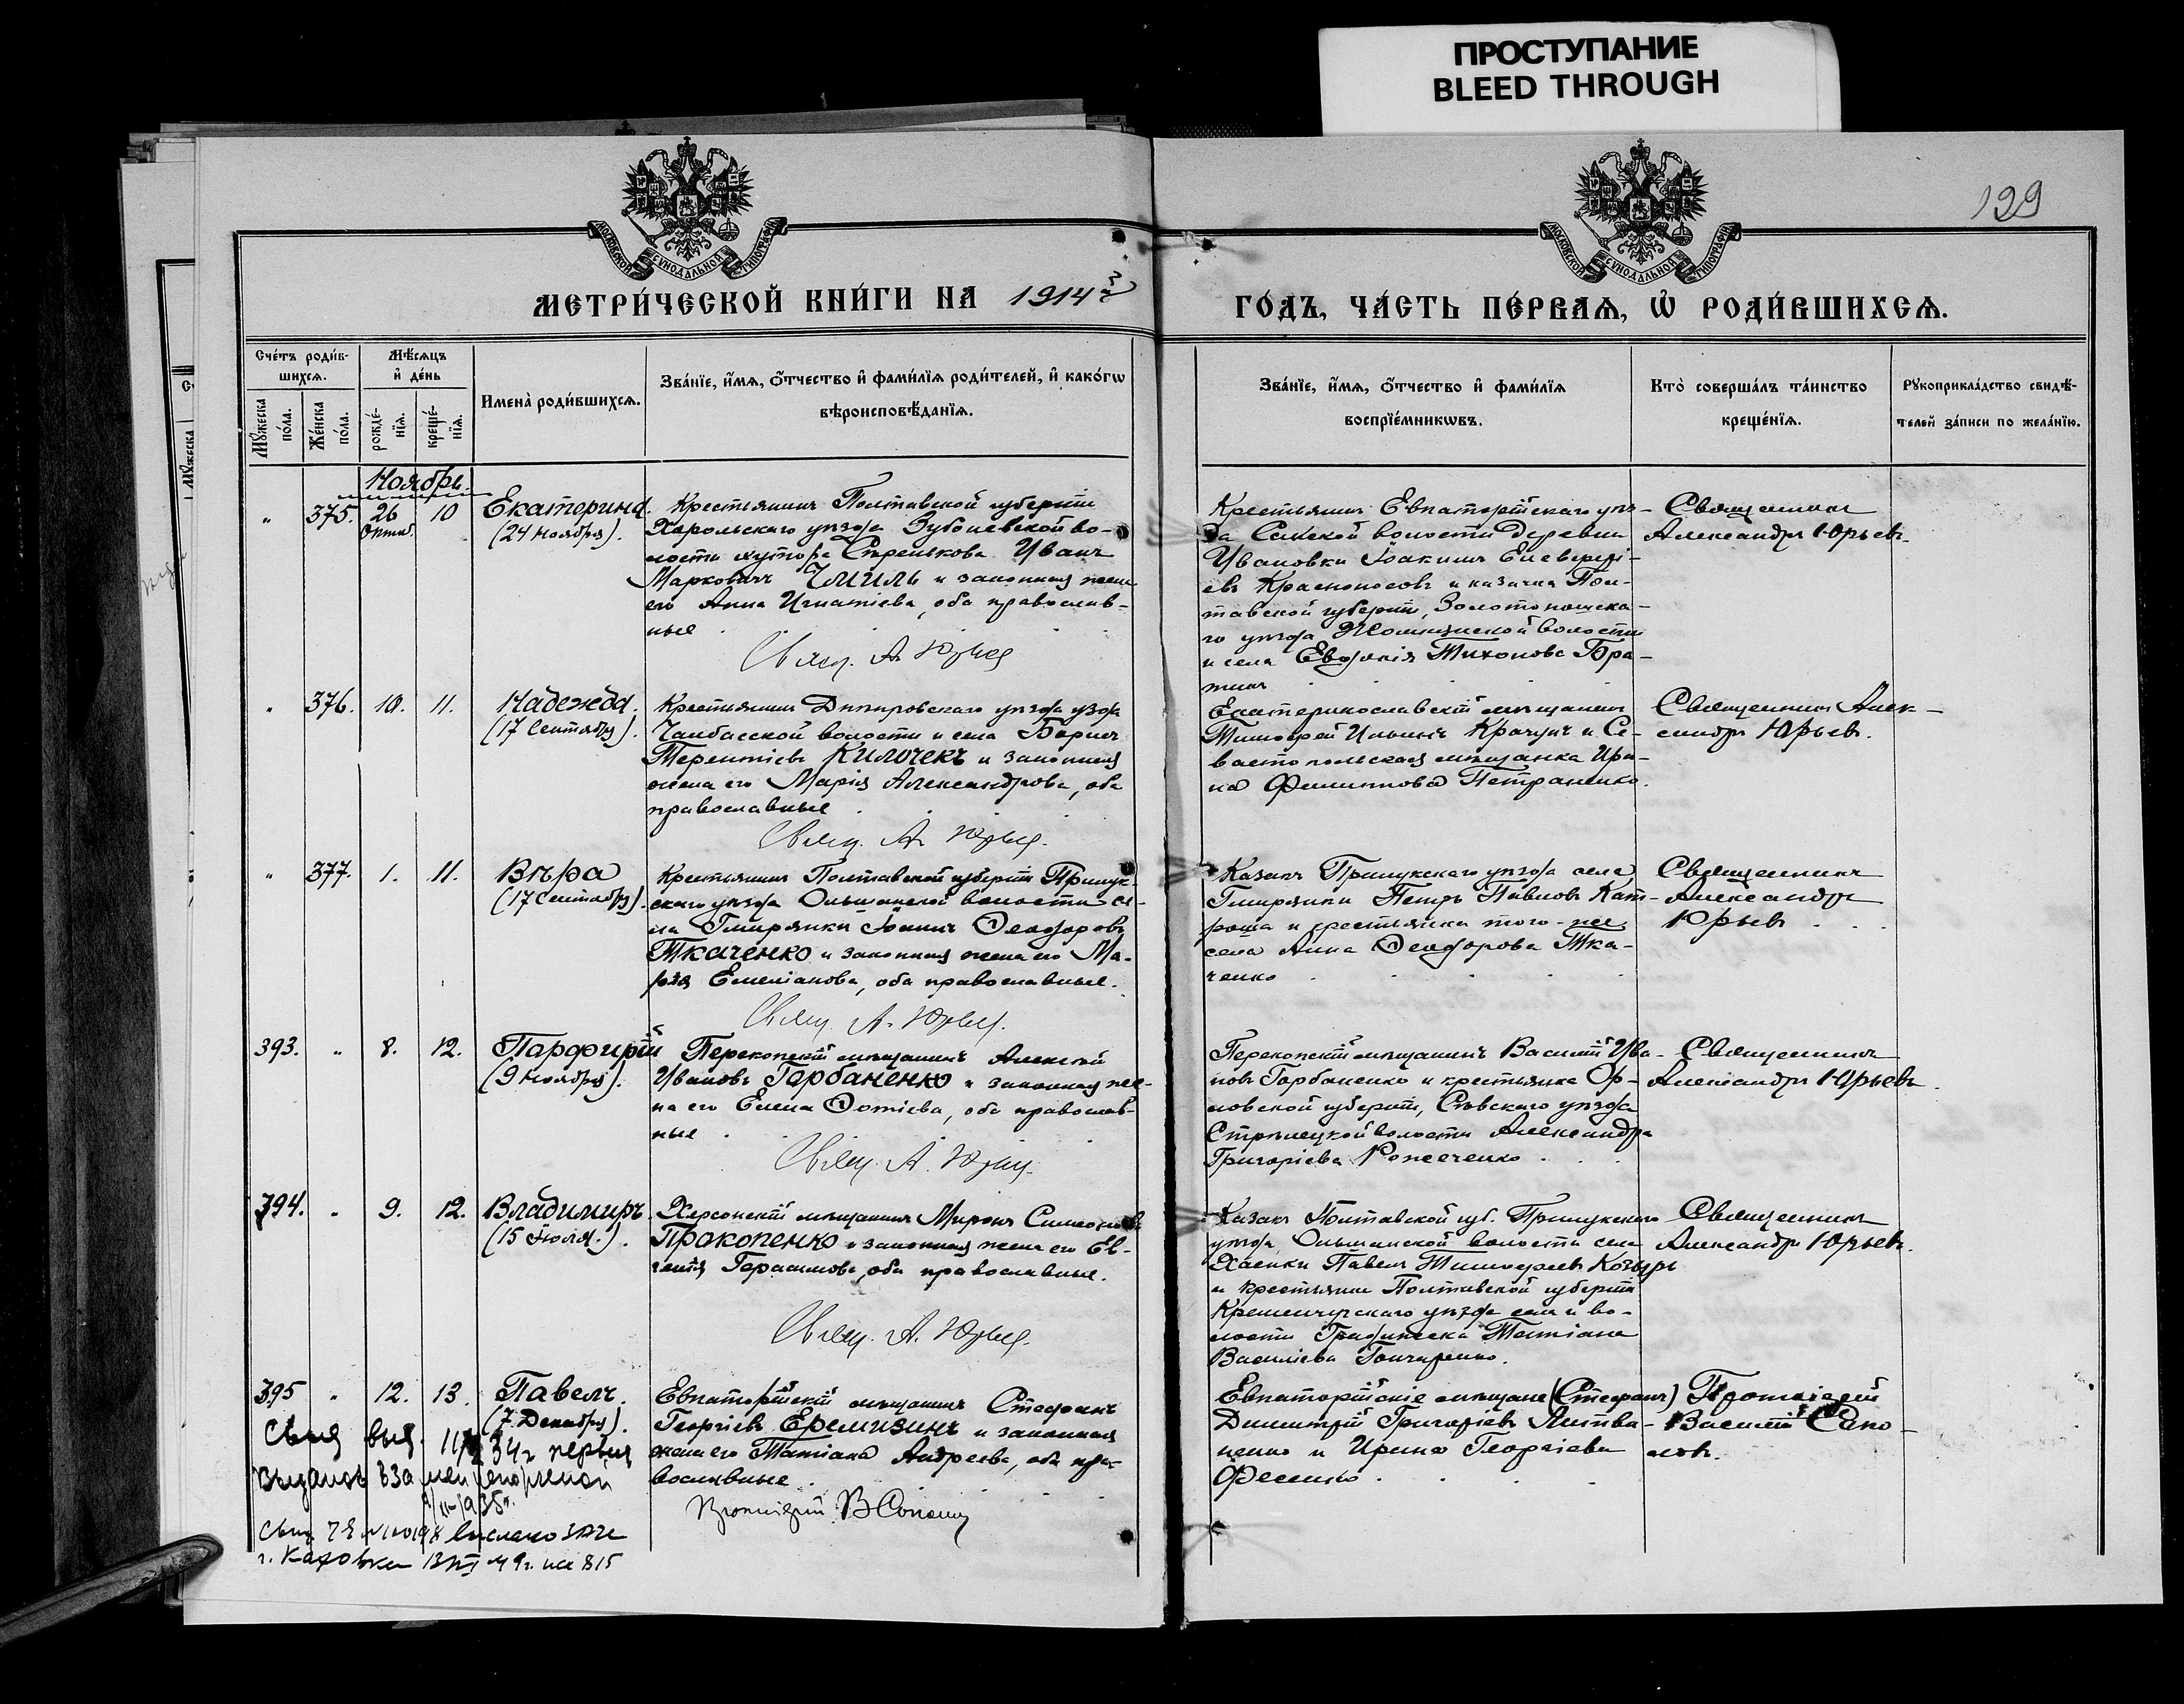 ПРОСТУПАНИЕ
BLEED THROUGH
129
МОСКОВСКОЙ СѴНОДАЛЬНОЙ ТИПОГРАФІИ
МОСКОВСКОЙ СѴНОДАЛЬНОЙ ТИПОГРАФІИ
МЕТРИ́ЧЕСКОЙ КНИ́ГИ НА 1914й
ГО́ДЪ, ЧА́СТЬ ПЕ́РВАѦ, Ѡ҆ РОДИ́ВШИХСѦ.
Сче́тъ роди́в-
шихсѧ.
Мꙋ́жеска
по́ла.
Же́нска
по́ла.
Мѣ́сѧцъ
и҆ де́нь
рожде́-
нїѧ.
креще́-
нїѧ.
Имена̀ роди́вшихсѧ.
Зва́нїе, и҆́мѧ, ѻ҆́тчество и҆ фами́лїѧ роди́телей, и҆ како́гѡ
вѣроисповѣ́данїѧ.
Зва́нїе, и҆́мѧ, ѻ҆́тчество и҆ фами́лїѧ
воспрїе́мникѡвъ.
Кто̀ соверша́лъ та́инство
креще́нїѧ.
Рꙋкоприкла́дство свидѣ́-
телей за́писи по жела́нїю.
Ноябрь.
" 375. 26 Октяб. 10
Екатерина.
(24 ноября).
Крестьянинъ Полтавской губерніи
Хорольскаго уѣзда Зубаневской во-
лости хутора Стренькова Иванъ
Марковичъ Чмиль и законная жена
его Анна Игнатіева, оба православ-
ные
Свящ. А. Юрьев
Крестьянинъ Евпаторійскаго уѣз-
да Сакской волости деревни
Ивановки Іоакимъ Елевфері-
евъ Красноносовъ и казачка Пол-
тавской губерніи, Золотоношска-
го уѣзда волости
и села Евдокія Тихонова Бра-
тикъ
Священникъ
Александръ Юрьевъ.
" 376. 10. 11.
Надежда.
(17 Сентября).
Крестьянинъ Днѣпровскаго уѣзда
Чалбасской волости и села Борисъ
Терентіевъ Килочекъ и законная
жена его Марія Александрова, оба
православные
Свящ. А. Юрьев.
Екатеринославскій мѣщанинъ
Тимофей Ильинъ Крачунъ и Се-
вастопольская мѣщанка Ири-
на Филиппова Петраненко.
Священникъ Алек-
сандръ Юрьевъ.
" 377. 1. 11.
Вѣра
(17 Сентября).
Крестьянинъ Полтавской губерніи Прилук-
скаго уѣзда Ольшанской волости се-
ла Гмирянки Іоаннъ Ѳеодоровъ
Ткаченко и законная жена его Ма-
рія Емеліанова, оба православные.
Свящ. А. Юрьев.
Казакъ Прилукскаго уѣзда села
Гмирянки Петръ Павловъ Кат-
раша и крестьянка того-же
села Анна Ѳеодорова Тка-
ченко
Священникъ
Александръ
Юрьевъ
393. " 8. 12.
Порфирій
(9 ноября).
Перекопскій мѣщанинъ Алексѣй
Ивановъ Горбаненко и законная же-
на его Елена Ѳотіева, оба православ-
ные
Свящ. А. Юрьев.
Перекопскій мѣщанинъ Василій Ива-
новъ Горбаненко и крестьянка Ор-
ловской губерніи, Сѣвскаго уѣзда
Стрѣлецкой волости Александра
Григоріева
Священникъ
Александръ Юрьевъ.
394. " 9. 12.
Владимиръ.
(15 Іюля).
Херсонскій мѣщанинъ Миронъ Симеоновъ
Прокопенко и законная жена его Ев-
генія Герасимова, оба православные.
Свящ. А. Юрьев.
Казакъ Полтавской губ. Прилукскаго
уѣзда, Ольшанской волости села
Хаенки Павелъ Тимофеевъ Козырь
и крестьянка Полтавской губерніи
Кременчугскаго уѣзда села и во-
лости Татіана
Василіева Гончаренко.
Священникъ
Александръ Юрьевъ.
395 " 12. 13.
Павелъ.
(7 Декабря).
Евпаторійскій мѣщанинъ Стефанъ
Георгіевъ Еремизинъ и законная
жена его Татіана Андреева, оба пра-
вославные
Протоіерей В Соколов
Евпаторійскіе мѣщане (Стефанъ)
Димитрій Григоріевъ Литви-
ненко и Ирина Георгіева
Фесенко
Протоіерей
Василій Соко-
ловъ.
34г
1935г.
г. Каховка